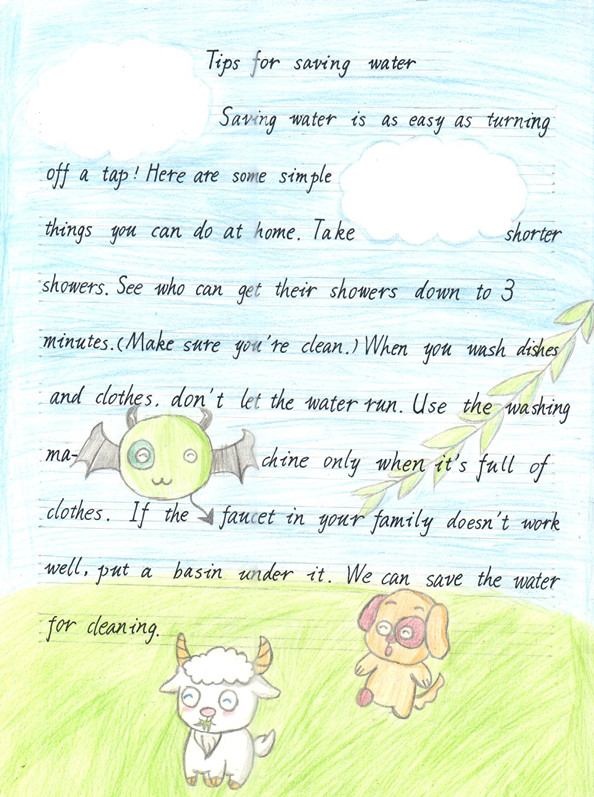 Tips for saving water
Saving water is as easy as turning
off a tap! Here are some simple
things you can do at home. Take shorter
showers. See who can get their showers down to 3
minutes. (Make sure you're clean.) When you wash dishes
and clothes. don't let the water run. Use the washing
ma- chine only when it's full of
clothes. If the faucet in your family doesn't work
well, put a basin under it. We can save the water
for cleaning.